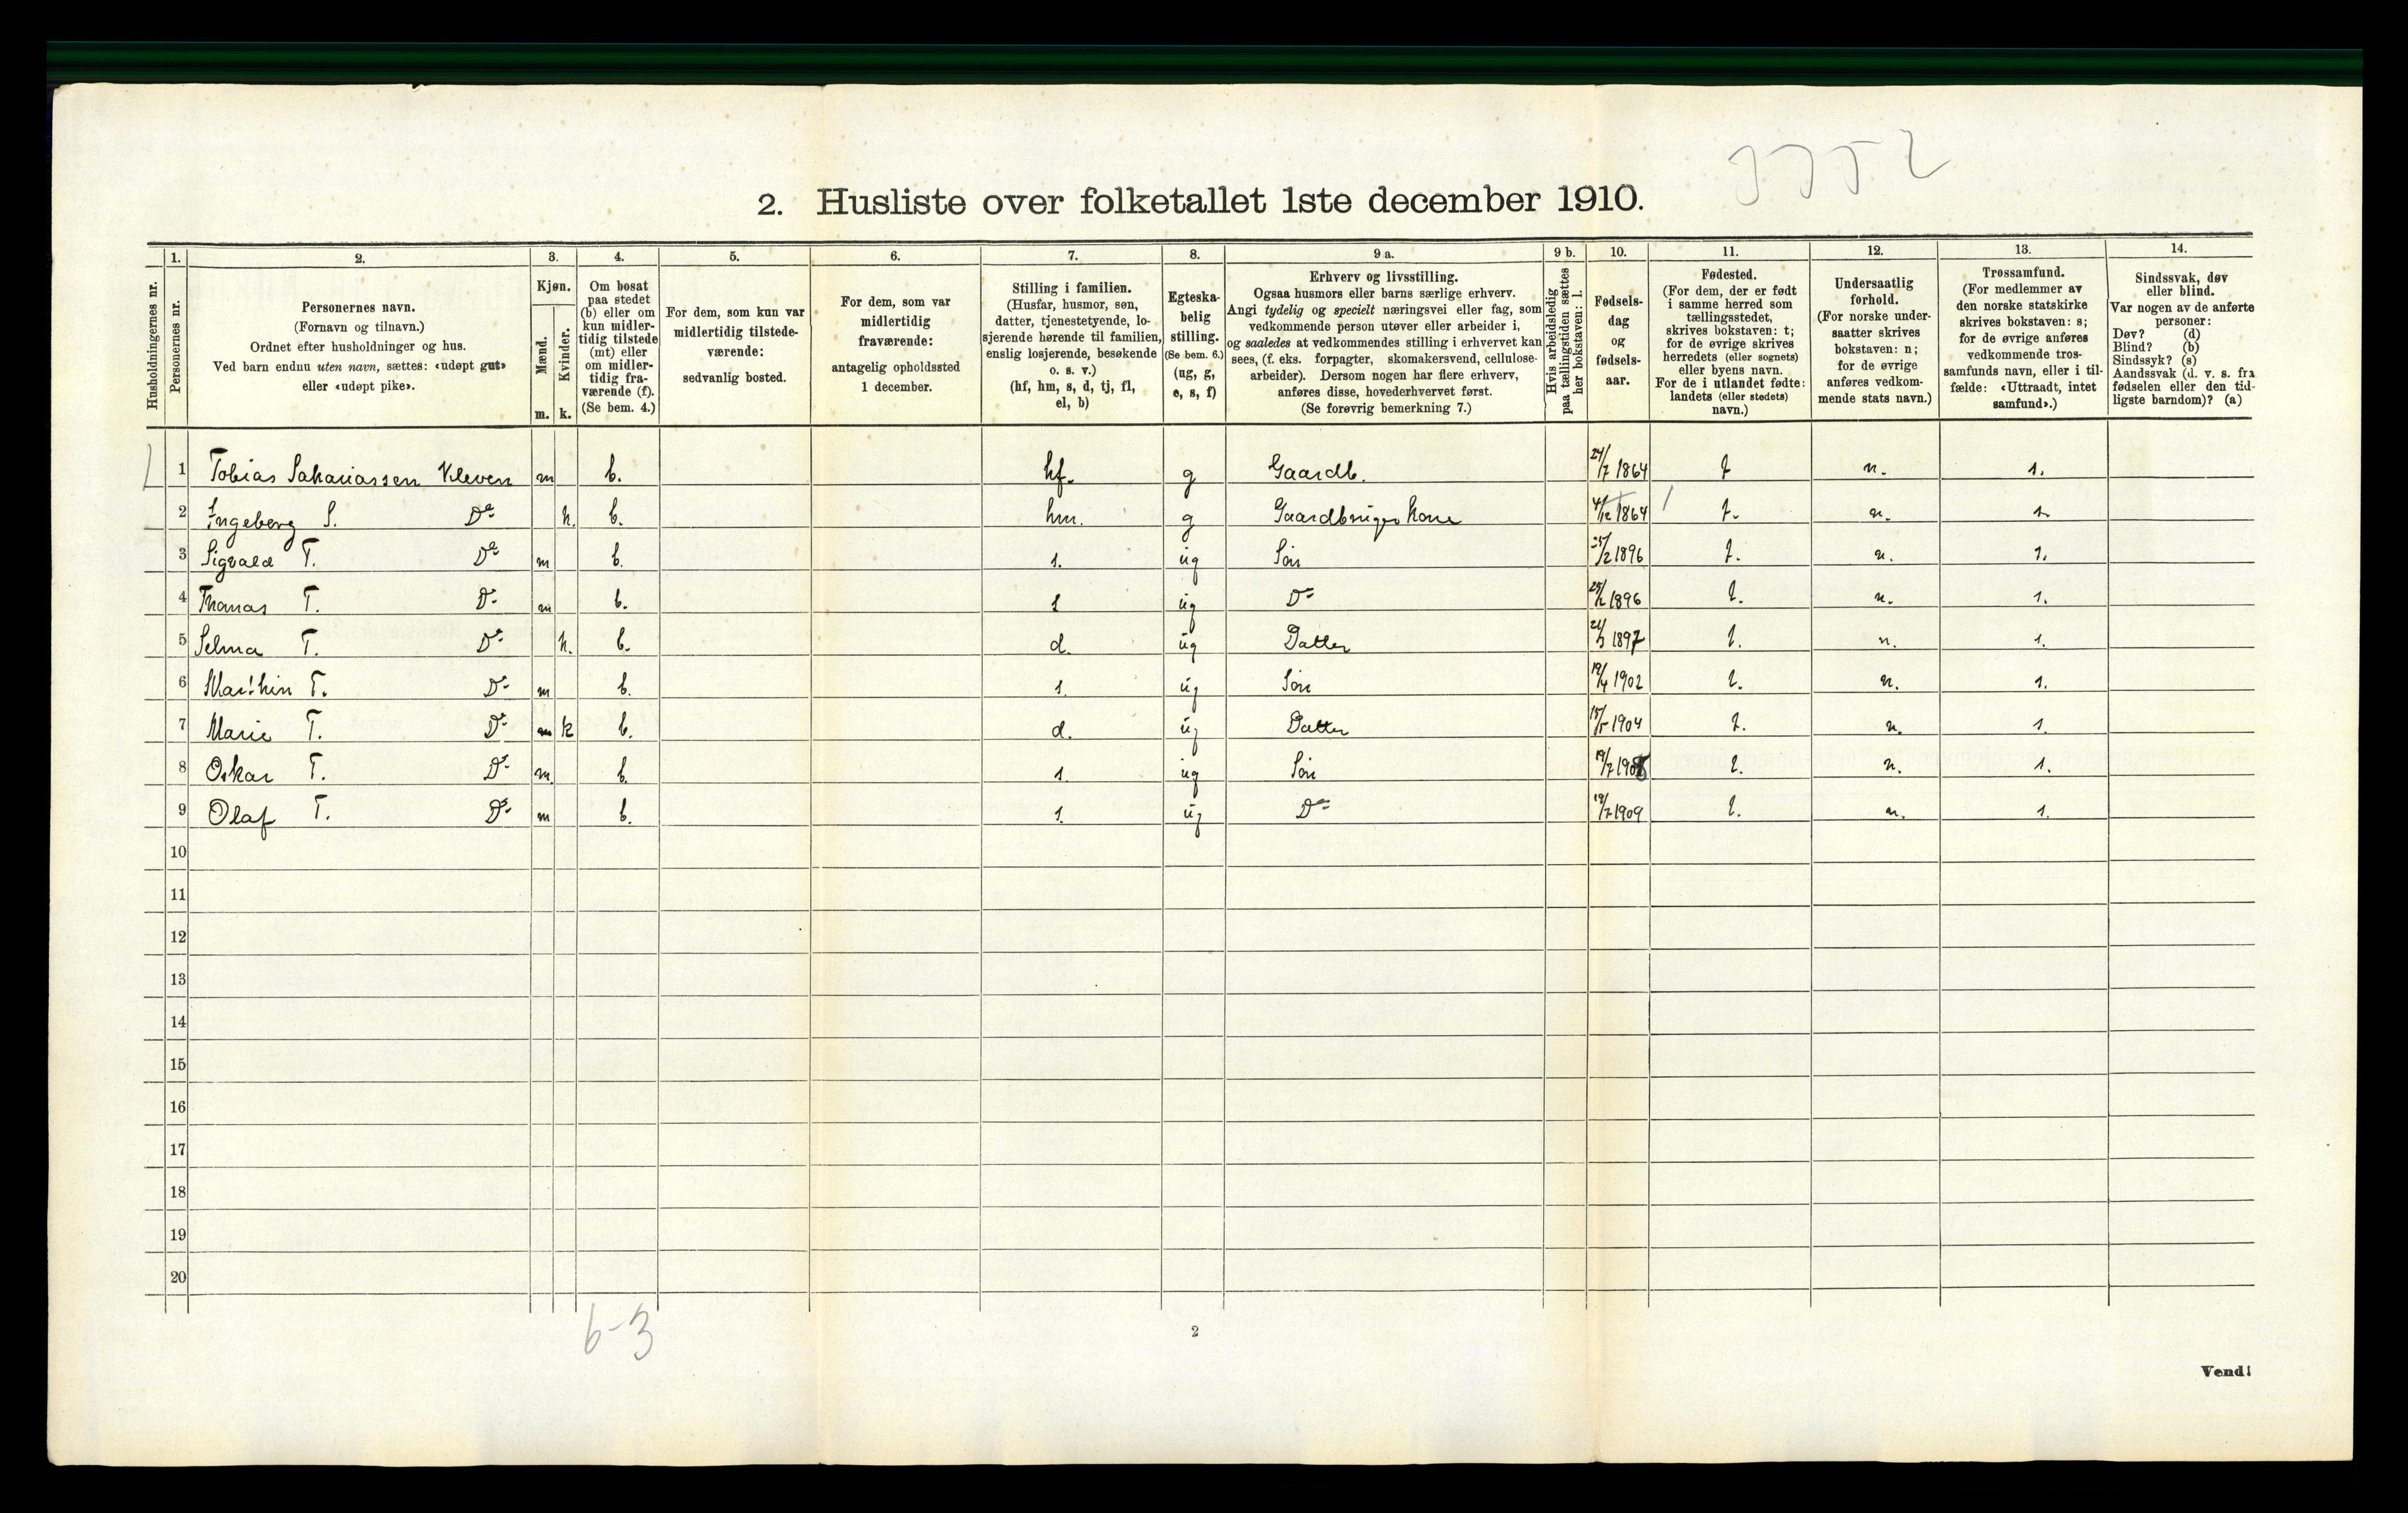 3352
2. Husliste over folketallet 1ste december 1910.
Husholdningernes nr.
1.
Personernes nr.
2.
Personernes navn.
(Fornavn og tilnavn.)
Ordnet efter husholdninger og hus.
Ved barn endnu uten navn, sættes: «udøpt gut»
eller «udøpt pike».
3.
Kjøn.
Mænd.
m.
Kvinder.
k.
4.
Om bosat
paa stedet
(b) eller om
kun midler-
tidig tilstede
(mt) eller
om midler-
tidig fra-
værende (f).
(Se bem. 4.)
5.
For dem, som kun var
midlertidig tilstede-
værende:
sedvanlig bosted.
6.
For dem, som var
midlertidig
fraværende:
antagelig opholdssted
1 december.
7.
Stilling i familien.
(Husfar, husmor, søn,
datter, tjenestetyende, lo-
sjerende hørende til familien,
enslig losjerende, besøkende
o. s. v.)
(hf, hm, s, d, tj, fl,
el, b)
8.
Egteska-
belig
stilling.
(Se bem. 6.)
(ug, g,
e, s, f)
9 a.
Erhverv og livsstilling.
Ogsaa husmors eller barns særlige erhverv.
Angi tydelig og specielt næringsvei eller fag, som
vedkommende person utøver eller arbeider i,
og saaledes at vedkommendes stilling i erhvervet kan
sees, (f. eks. forpagter, skomakersvend, cellulose-
arbeider). Dersom nogen har flere erhverv,
anføres disse, hovederhvervet først.
(Se forøvrig bemerkning 7.)
9 b.
Hvis arbeidsledig
paa tællingstiden sættes
her bokstaven: l.
10.
Fødsels-
dag
og
fødsels-
aar.
11.
Fødested.
(For dem, der er født
i samme herred som
tællingsstedet,
skrives bokstaven: t;
for de øvrige skrives
herredets (eller sognets)
eller byens navn.
For de i utlandet fødte:
landets (eller stedets)
navn.)
12.
Undersaatlig
forhold.
(For norske under-
saatter skrives
bokstaven: n;
for de øvrige
anføres vedkom-
mende stats navn.)
13.
Trossamfund.
(For medlemmer av
den norske statskirke
skrives bokstaven: s;
for de øvrige anføres
vedkommende tros-
samfunds navn, eller i til-
fælde: «Uttraadt, intet
samfund».)
14.
Sindssvak, døv
eller blind.
Var nogen av de anførte
personer:
Døv? (d)
Blind? (b)
Sindssyk? (s)
Aandssvak (d. v. s. fra
fødselen eller den tid-
ligste barndom)? (a)
1 Tobias Sakariassen Kleven m b. hf. g Gaardb. 24/7 1864 t n. s.
2 Ingeberg S. Do k. b. hm. g Gaardbruger kone 4/12 1864 t. n. s
3 Sigvald T. Do m b. s. ug Søn 25/2 1896 t. n. s.
4 Thomas T. Do m b. s ug Do 25/2 1896 t. n. s.
5 Selma T. Do k. b. d. ug Datter 21/3 1897 t. n. s.
6 Marthin T. Do m b. s. ug Søn 19/4 1902 t. n. s.
7 Marie T. Do m k b. d. ug Datter 15/5 1904 t. n. s.
8 Oskar T. Do m. b. s. ug Søn 19/7 1908 t. n. s.
9 Olaf T. Do m b. s. ug Do 19/7 1909 t. n. s.
10
11
12
13
14
15
16
17
18
19
20
6-3
2
Vend!